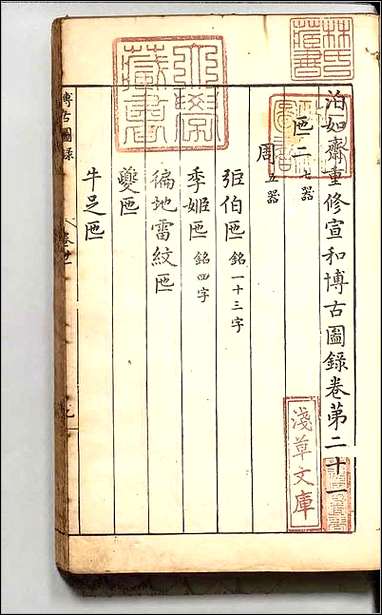 泊如齋重修宣和博古圖錄卷第二十一
匜二 七器
周 五器
弡伯匜 銘一十三字
季姬匜 銘四字
徧地雷紋匜
夔匜
牛足匜
博古圖錄
淺草文庫
林氏藏書